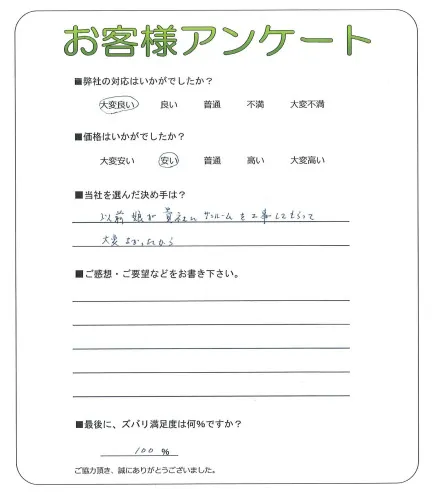 お客様アンケート
■弊社の対応はいかがでしたか？
大変良い 良い 普通 不満 大変不満
■価格はいかがでしたか？
大変安い 安い 普通 高い 大変高い
■当社を選んだ決め手は？
以前 娘が 貴社に サンルームを工事してもらって
大変 よかったから
■ご感想・ご要望などをお書き下さい。
■最後に、ズバリ満足度は何％ですか？
100 %
ご協力頂き、誠にありがとうございました。